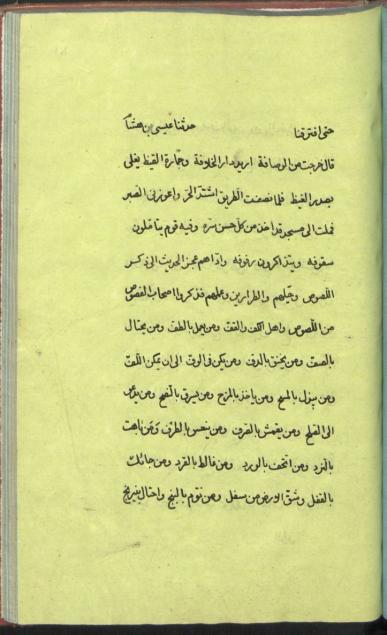 حتى افترقنا حدثنا عيسى بن هشام
قال خرجت من الرصافة اريد دار الخلافة وحمارة القيظ يغلى
بصدر الغيظ فلما نصفت الطريق اشتد الحر واعوزنى الصبر
فملت الى مسجد قد اخذ من كل حسن سره وفيه قوم يتاملون
سقوفه ويتذاكرون وقوفه واداهم عجز الحديث الى ذكر
اللصوص وحيلهم والطرارين وعملهم فذكروا اصحاب الفصوص
من اللصوص واهل الكف والقف ومن يعمل بالطف ومن يحتال
بالصف ومن يخنق بالدف ومن يكمن فى الرف الى ان يمكن اللف
ومن يبدل بالمسح ومن ياخذ بالمزح ومن يسرق بالنصح ومن يدعو
الى الصلح ومن يقمش بالصرف ومن ينعس بالطرف ومن باهت
بالنرد ومن اتحف بالورد ومن غالط بالقرد ومن كابر
بالقفل وشق الارض من سفل ومن نوم بالبنج واحتال بنيرنج